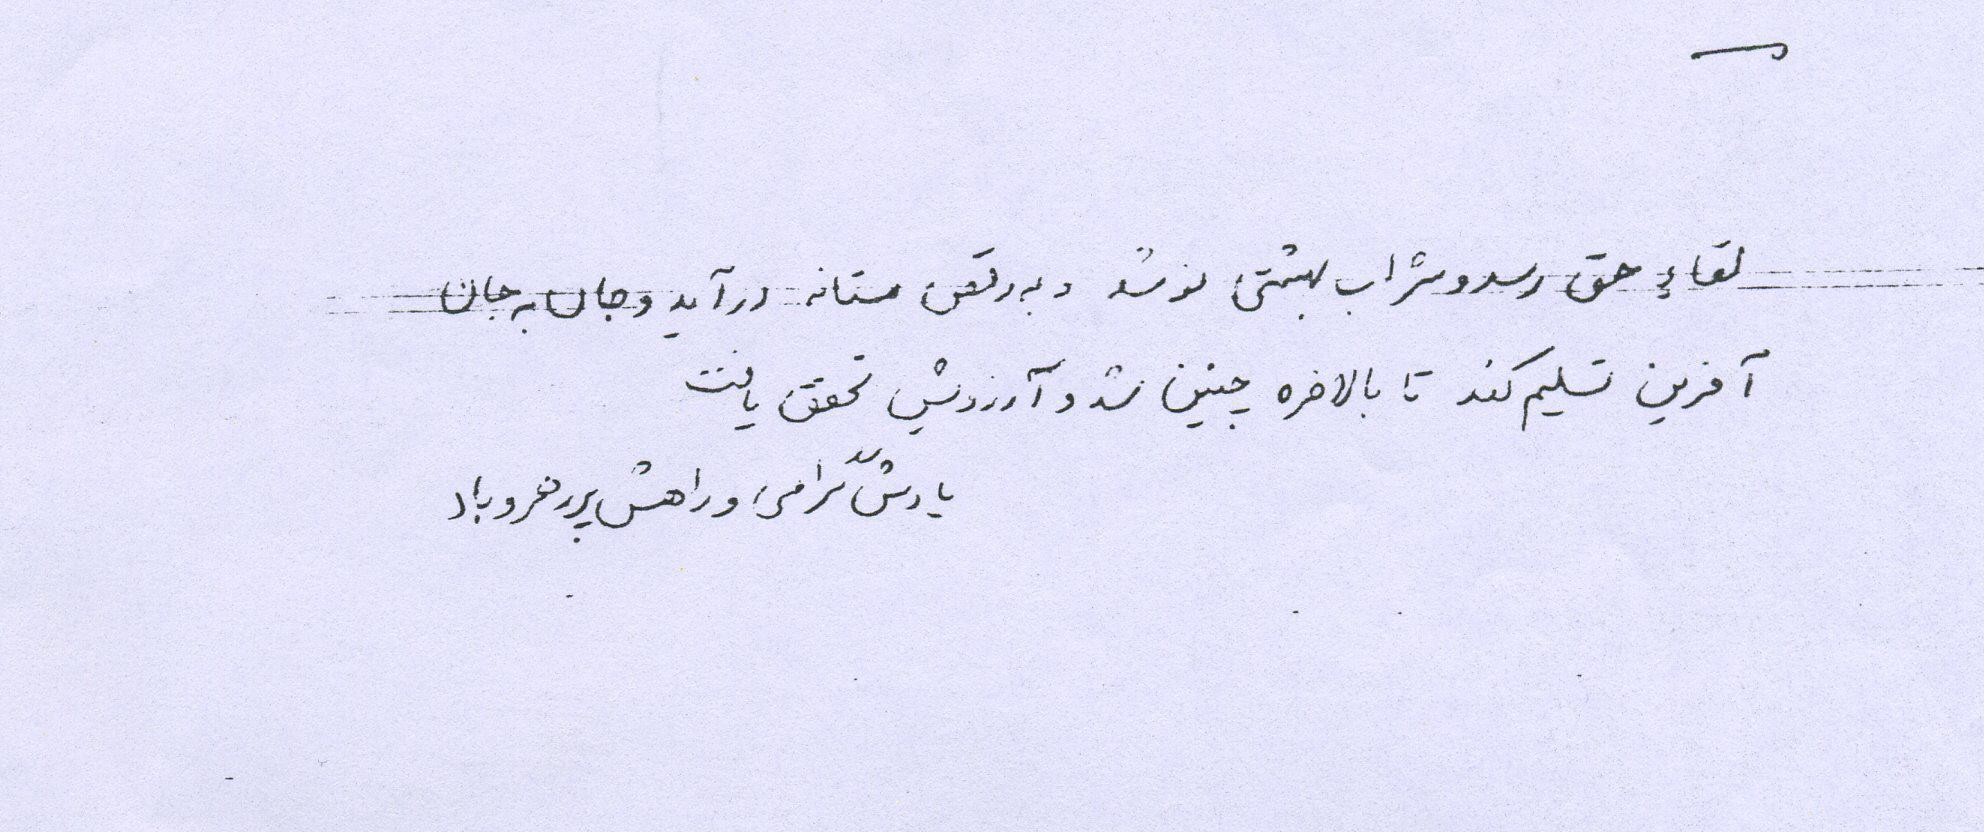 لقاء حق رسد و شراب بهشتی نوشد و به رقص مستانه درآید و جان به جان
آفرین تسلیم کند تا بالاخره چنین شد و آرزویش تحقق یافت
یادش گرامی و راهش پر رهرو باد